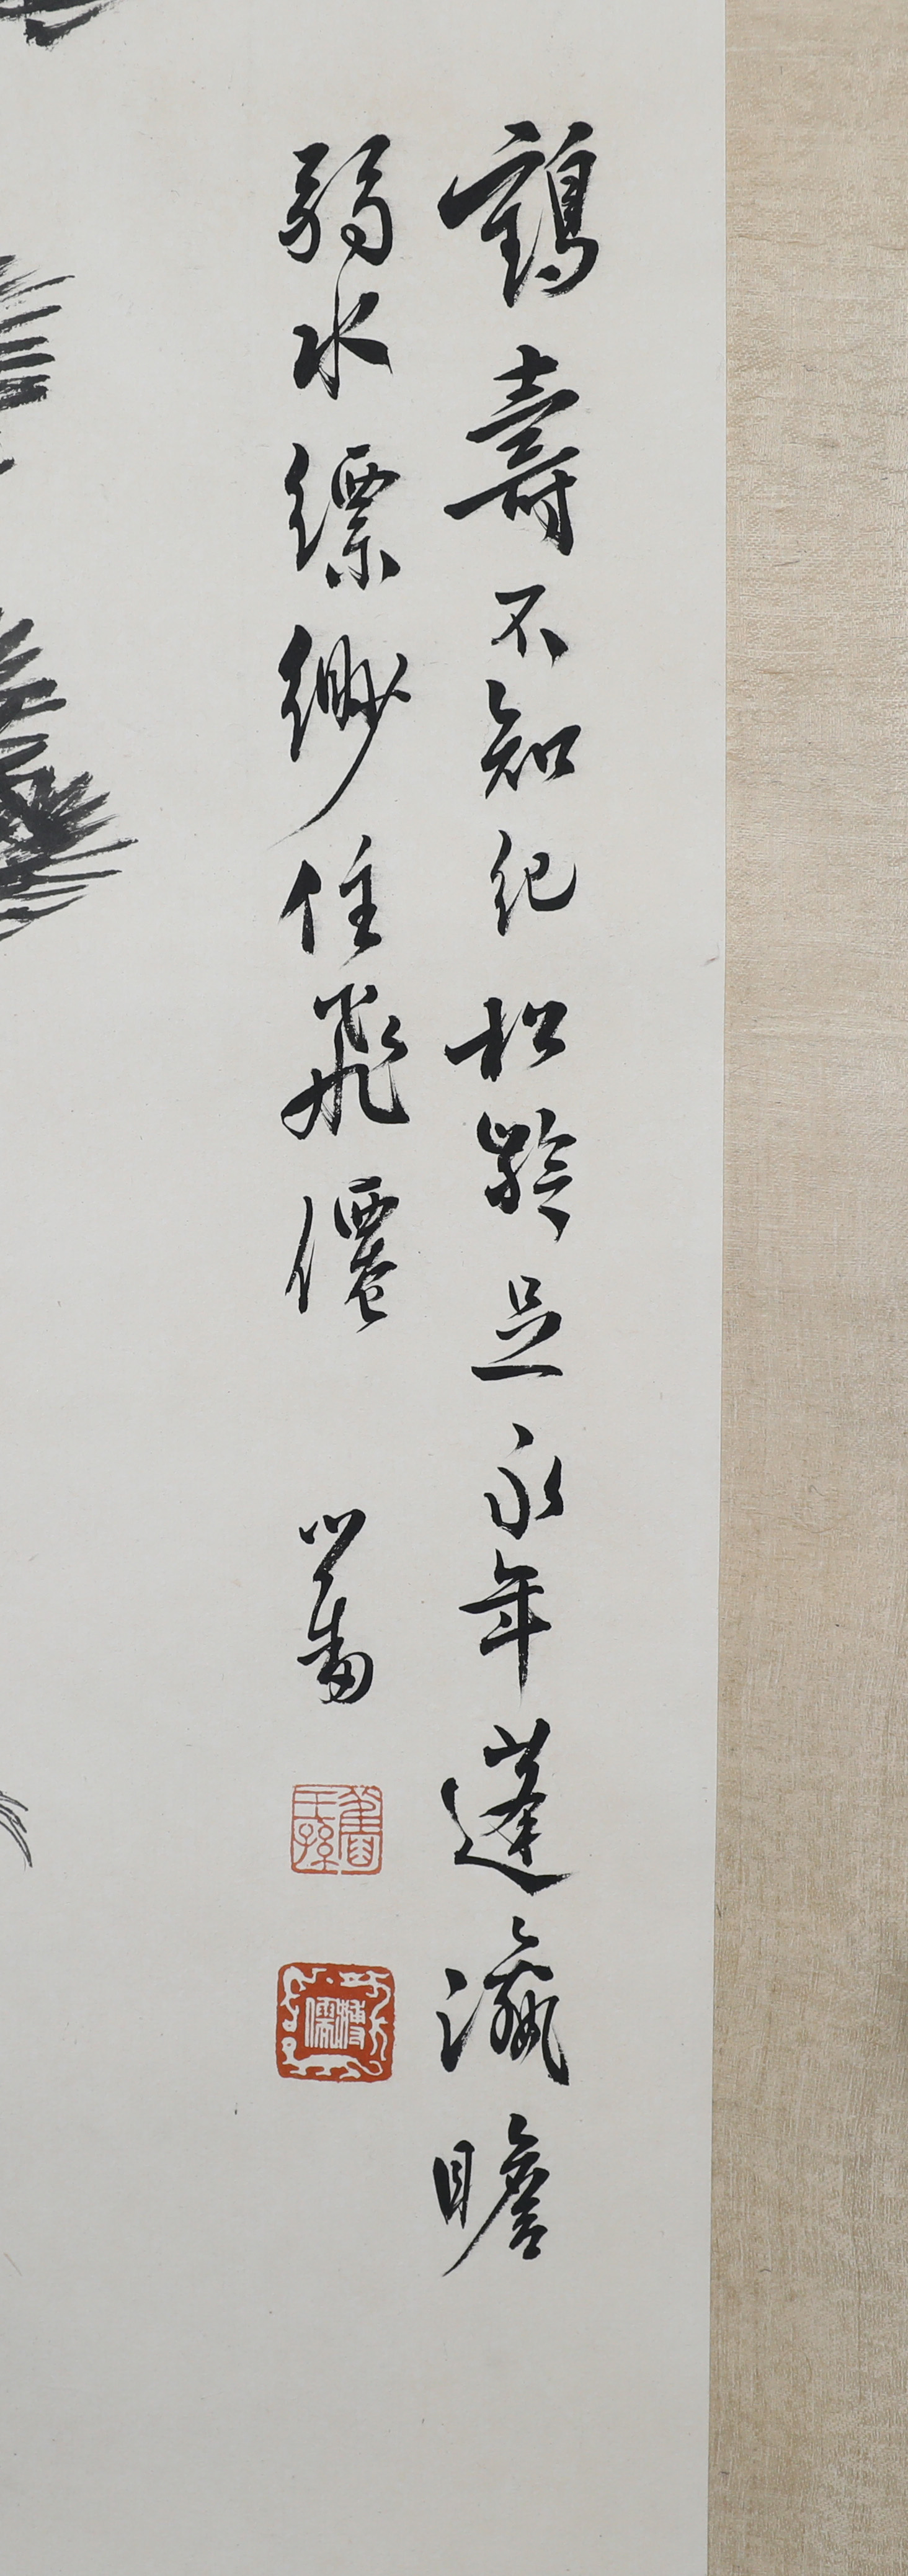 鶴壽不知紀松齡足永年蓬瀛瞻
弱水縹緲住飛僊
心畬
舊王孫
溥儒